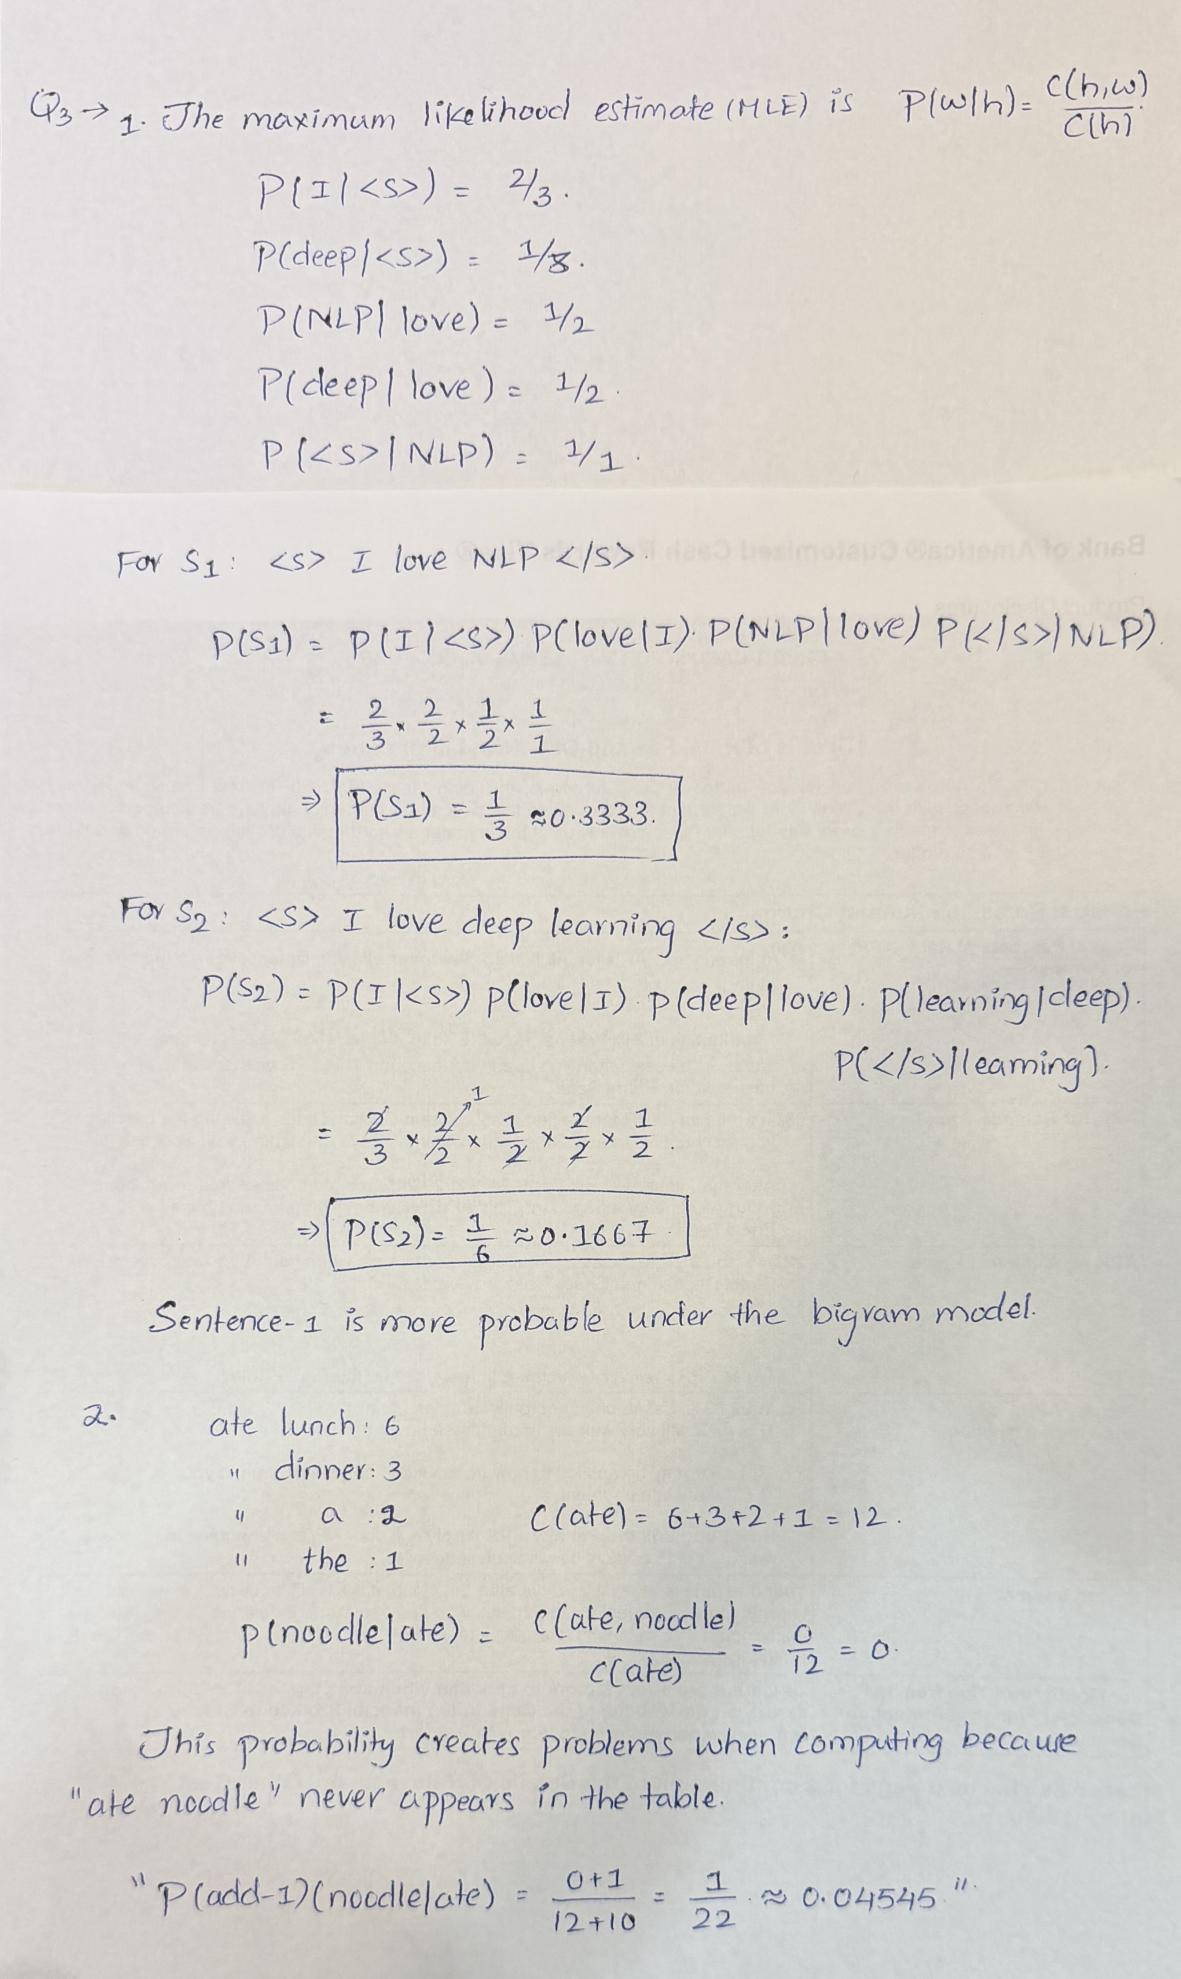 Q3 → 1. The maximum likelihood estimate (MLE) is P(w|h) = C(h,w) / C(h)
P(I|<S>) = 2/3.
P(deep|<S>) = 1/3.
P(NLP|love) = 1/2
P(deep|love) = 1/2.
P(<S>|NLP) = 1/1.
For S1: <S> I love NLP </S>.
P(S1) = P(I|<S>) P(love|I). P(NLP|love) P(</S>|NLP).
= 2/3 × 2/2 × 1/2 × 1/1
⇒ P(S1) = 1/3 ≈0.3333.
For S2: <S> I love deep learning </S>:
P(S2) = P(I|<S>) P(love|I). P(deep|love). P(learning|deep).
P(</S>|learning).
= 2/3 × 2/2 ↗1 × 1/2 × 2/2 × 1/2.
⇒ P(S2) = 1/6 ≈0.1667
Sentence-1 is more probable under the bigram model.
2. ate lunch: 6
" dinner: 3
" a : 2 C(ate) = 6+3+2+1 = 12.
" the : 1
P(noodle|ate) = C(ate, noodle) / C(ate) = 0/12 = 0.
This probability creates problems when computing because
"ate noodle" never appears in the table.
"P(add-1)(noodle|ate) = 0+1 / 12+10 = 1/22 ≈ 0.04545".